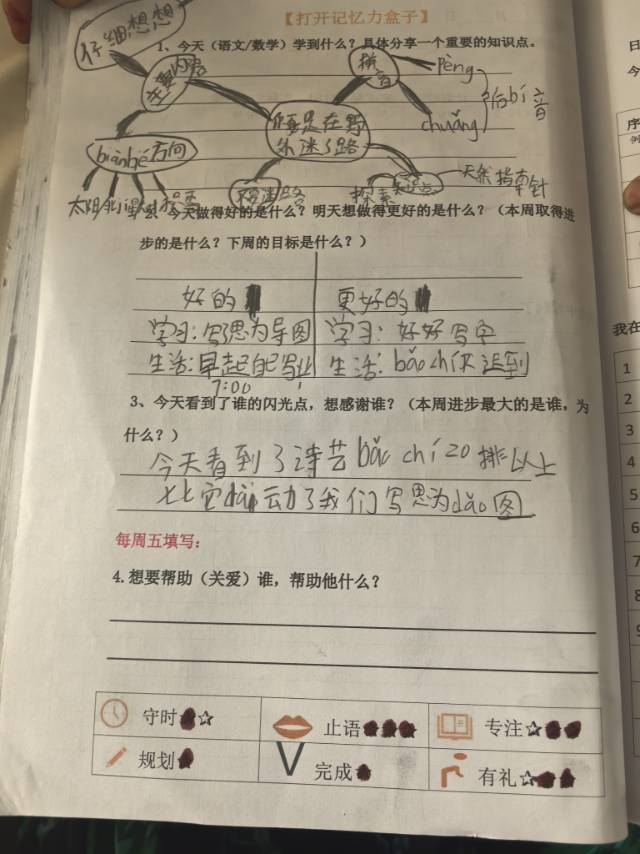 【打开记忆力盒子】
仔细想想
1、今天（语文/数学）学到什么？具体分享一个重要的知识点。
主要内容
拼音
pèng
chuǎng
后bí音
你要是在野
外迷了路
biànbé方向
太阳
天然指南针
探索
2、今天做得好的是什么？明天想做得更好的是什么？（本周取得进
步的是什么？下周的目标是什么？）
好的
更好的
学习：写思为导图
学习：好好写字
生活：早起自己写业
生活：bǎo chí不迟到
7:00
3、今天看到了谁的闪光点，想感谢谁？（本周进步最大的是谁，为
什么？）
今天看到了诗芸bǎo chí 20排以上
让我们写思为dǎo图
每周五填写：
4.想要帮助（关爱）谁，帮助他什么？
守时
止语
专注
规划
完成
有礼
日
今
序
例
我在
1
2
3
4
5
6
7
8
9